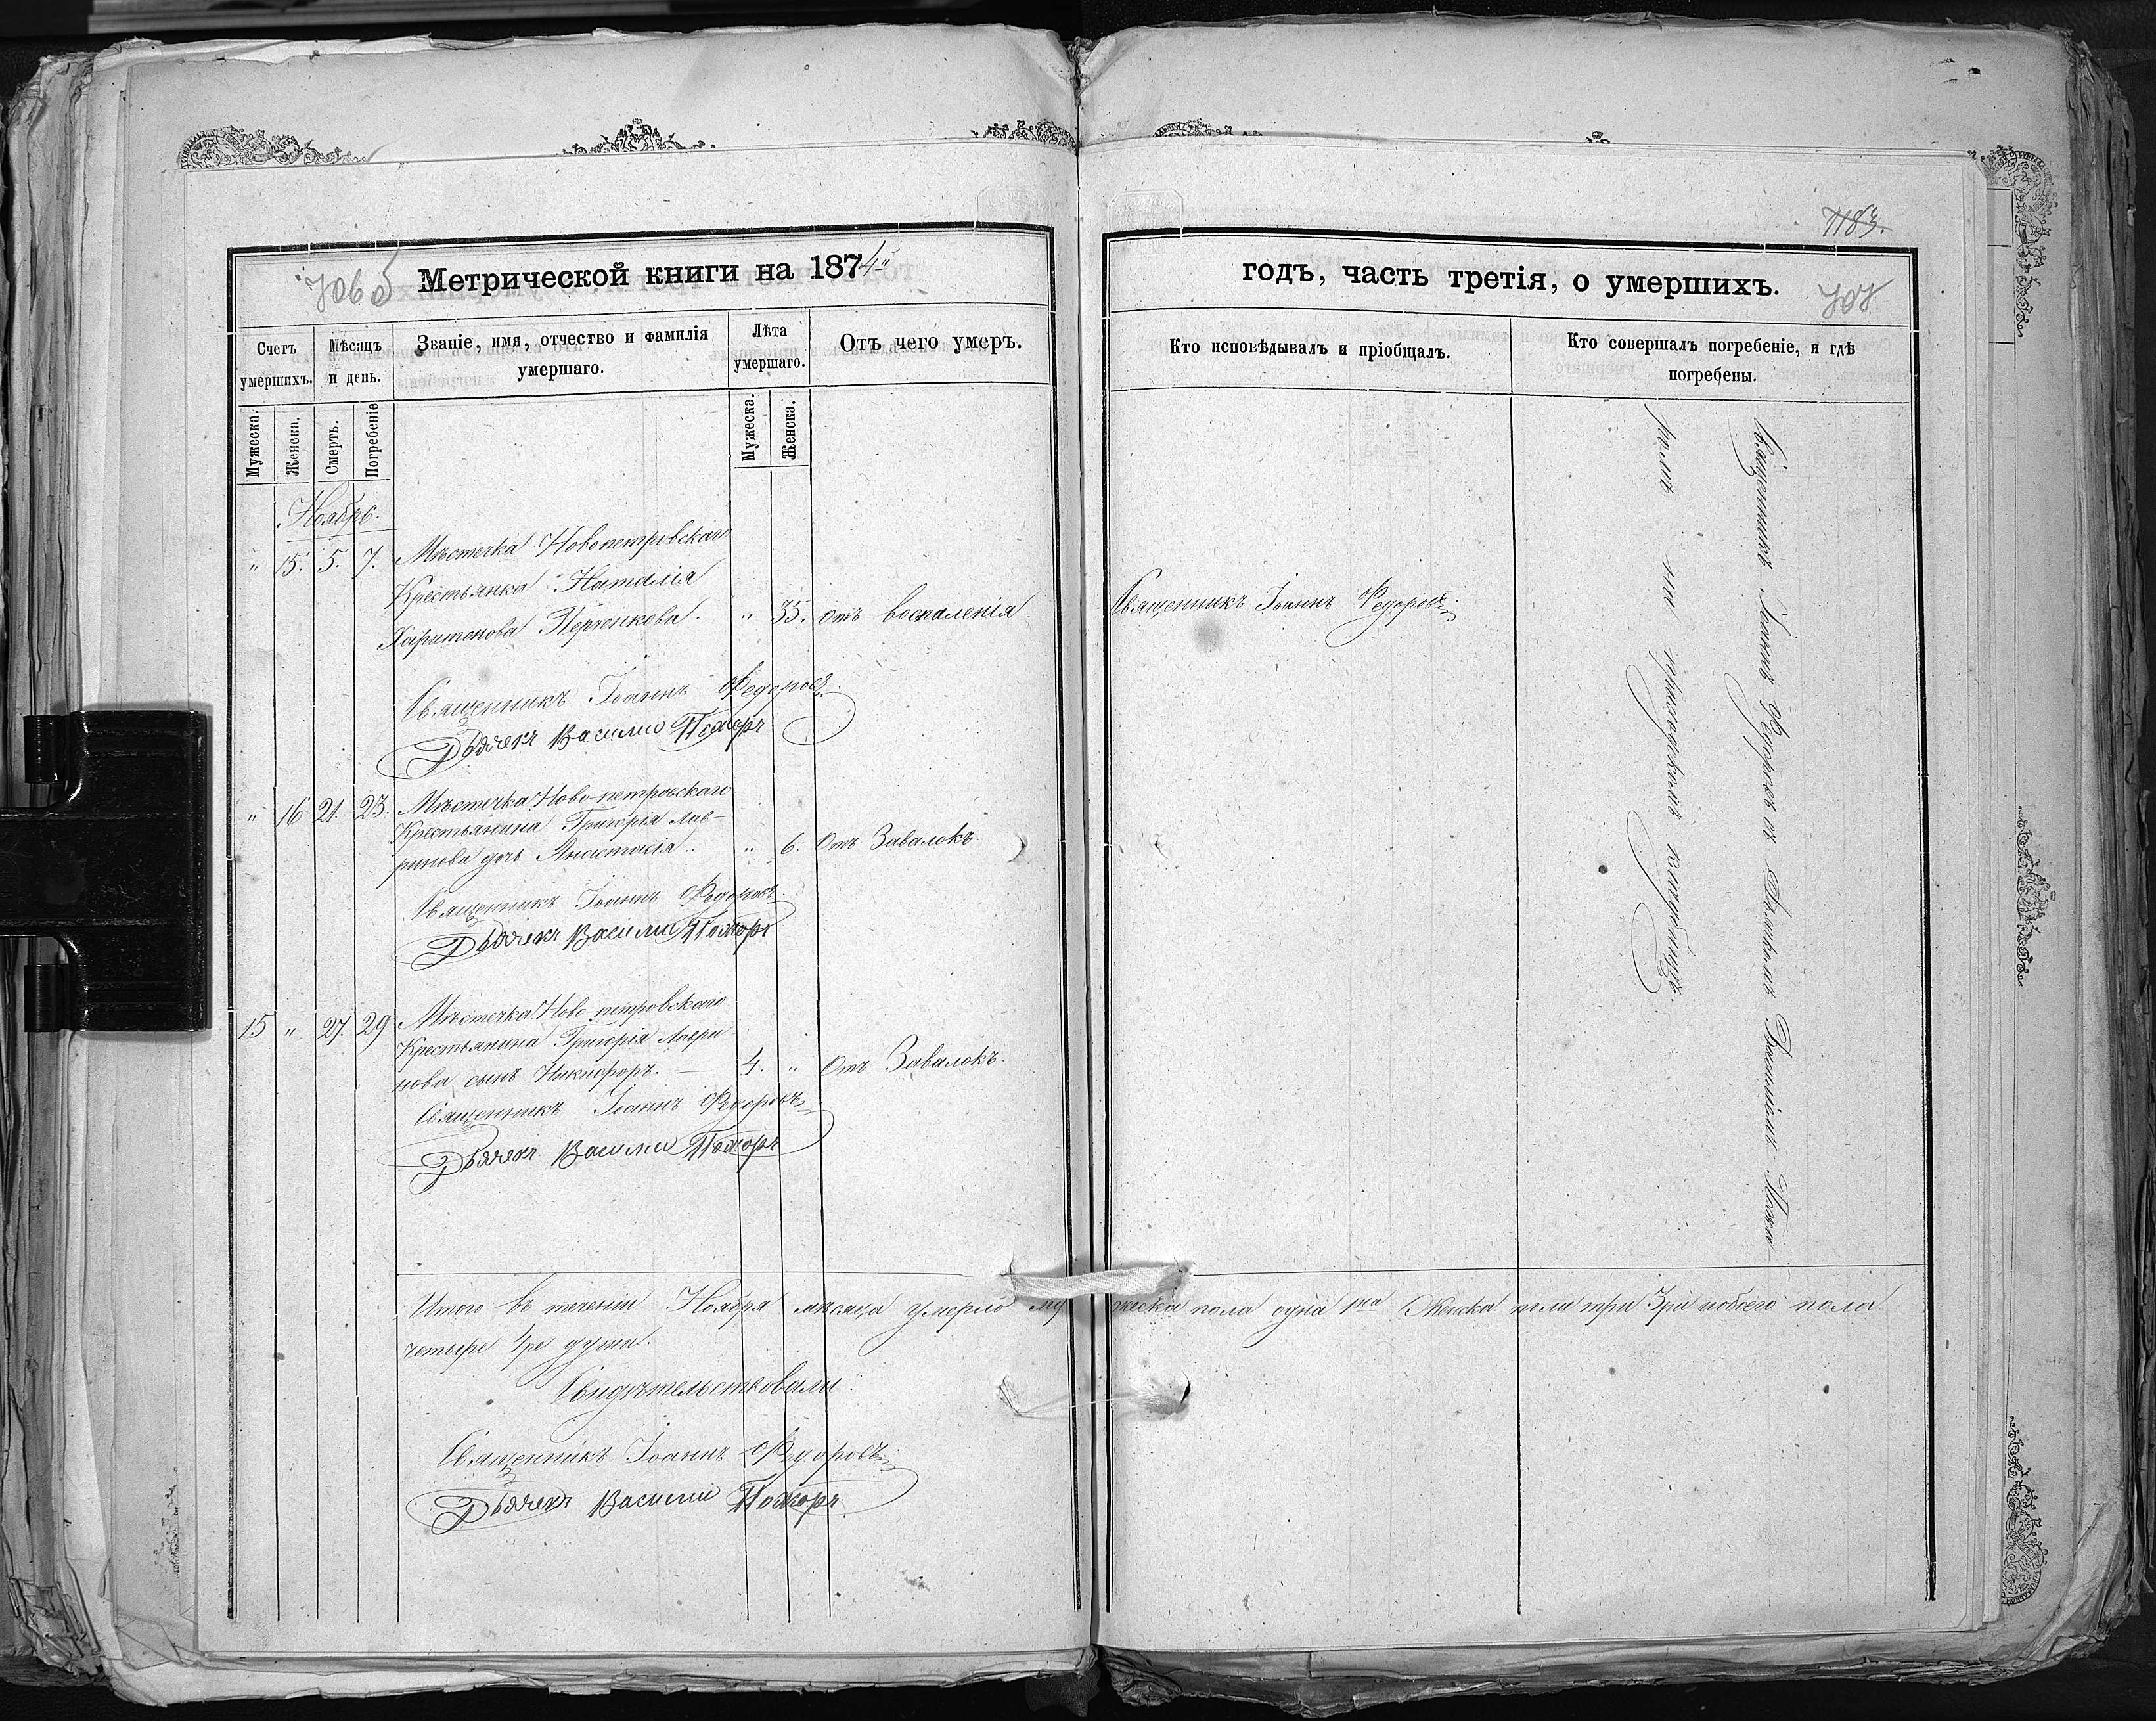 7183.
706 б
Метрической книги на 1874й
годъ, часть третія, о умершихъ.
707
Счетъ умершихъ.
Мѣсяцъ и день.
Званіе, имя, отчество и фамилія умершаго.
Лѣта умершаго.
Отъ чего умеръ.
Кто исповѣдывалъ и пріобщалъ.
Кто совершалъ погребеніе, и гдѣ погребены.
Мужеска.
Женска.
Смерть.
Погребеніе
Мужеска.
Женска.
Ноябрь.
" 15. 5. 7. Мѣстечка Новопетровскаго
Крестьянка Наталія
Харитонова Перченкова. " 35. отъ воспаленія
Священникъ Іоаннъ Федоровъ
Священникъ Іоаннъ Федоровъ.
Дьячекъ Васили
" 16 21. 23. Мѣстечка Ново-петровскаго
Крестьянина Григорія Лав-
ринова дочь Анастасія.. " 6. Отъ Завалокъ.
Священникъ Іоаннъ Федоровъ
Дьячекъ Васили
15 " 27. 29 Мѣстечка Ново-петровскаго
Крестьянина Григорія Лаври
нова сынъ Никифоръ. — 4. " Отъ Завалокъ.
Священникъ Іоаннъ Федоровъ
Дьячекъ Васили
Священникъ Іоаннъ Федоровъ съ Дьячкомъ Василіемъ
на приходскомъ кладбищѣ.
Итого въ теченіи Ноября мѣсяца умерло мужеска пола одна 1на Женска пола три 3ри иобоего пола
четыре 4ре души.
Свидѣтельствовали:
Священникъ Іоаннъ Федоровъ
Дьячекъ Васили